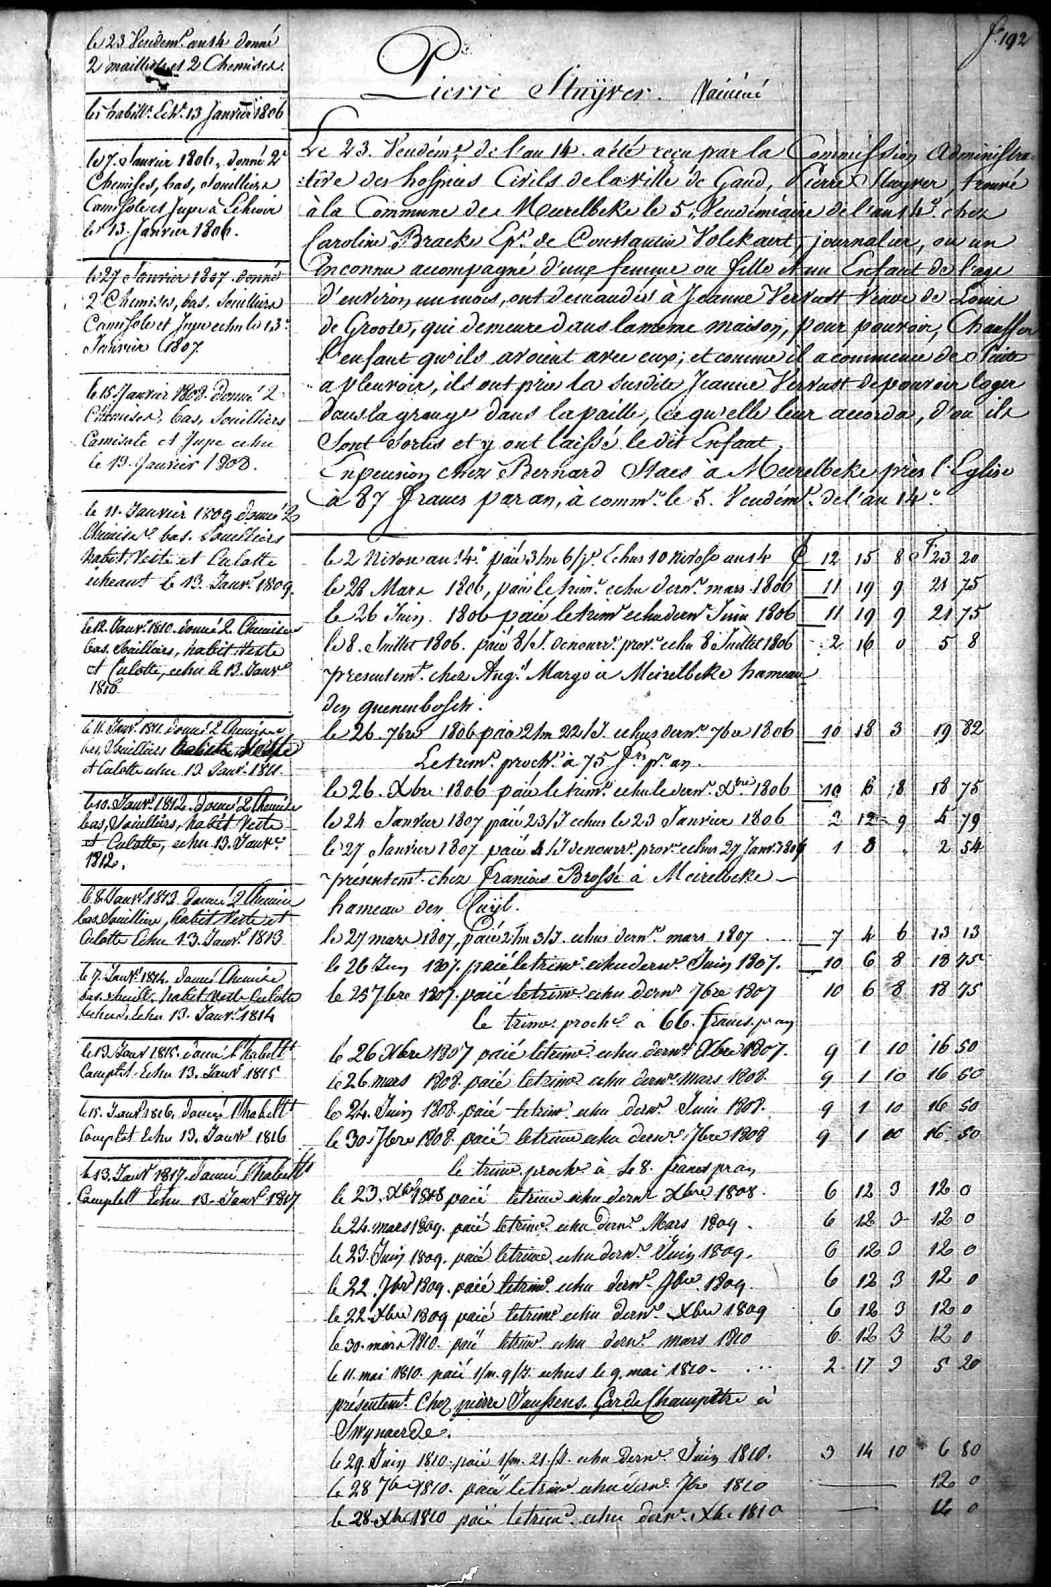 fo. 192
Pierre Stuyver. Vaicciné
le 23 Vendemre an 14 donné
2 maillots et 2 Chemises.
les habillts Echs 13 Janvier 1806
le 7. Janvier 1806. donné 2
Chemises, bas, Souilliers
Camisole et Jupe à Echeoir
le 13. Janvier 1806.
le 27 Janvier 1807. donné
2 Chemises, bas. Souilliers
Camisole et Jupe echu le 13
Janvier 1807.
le 15. Janvier 1808. donné 2
Chemises, bas, Souilliers
Camisole et Jupe echu
le 13. Janvier 1808.
le 11. Janvier 1809 donné 2
Chemises. bas. Souilliers
habit Veste et Culotte
écheant le 13. Janvr 1809.
le 12. Janvr 1810. donné 2 Chemises
bas. Souilliers, habit Veste
et Culotte, echu le 13. Janvr
1810
le 11. Janvr 1811. donné 2 Chemises
bas, Souilliers habit Veste
et Culotte echu 13 Janvr 1811.
le 10. Janvr 1812. donné 2 Chemises
bas, Souilliers, habit Veste
et Culotte, echu 13. Janvr
1812.
le 8. Janvr 1813 donné 2 Chemises
bas Souilliers, habit Veste et
Culotte Echu 13. Janvr 1813
le 7. Janvr 1814. donné Chemises
bas. Souill. habit Veste Culotte
Echu 13. Janvr 1814
le 13. Janvr 1815. donné l'habillt
Complet Echu 13. Janvr 1815
le 15. Janvr 1816. donné l'habillt
Complet Echu 13. Janvr 1816
le 13. Janvr 1817. donné l'habillt
Complett Echu 13. Janvr 1817
Le 23. Vendémre de l'an 14. a été reçu par la Commission Administra-
:tive des hospices Civils de la ville de Gand, Pierre Stuyver, trouvé
à la Commune de Meerelbeke le 5. Vendémiaire de l'an 14. chez
Caroline Bracke Epse de Constantin Volckaert, journalier, ou un
inconnu accompagné d'une femme ou fille et un Enfant de l'age
d'environ un mois, ont demandés à Jeanne Vervust Veuve de Louis
de Groote, qui demeure dans la meme maison, pour pouvoir, Chauffer
l'enfant qu'ils avoient avec eux; et comme il a commencé de suite
a pleuvoir, ils ont priés la susdite Jeanne Vervust de pouvoir loger
dans la grange dans la paille, ce qu'elle leur acorda, d'ou ils
Sont Sortis et y ont laissé le dit Enfant.
En pension chez Bernard Staes à Meerelbeke près l'Eglise
à 87 francs par an, à commr le 5. Vendémre de l'an 14.
le 2 Nivose an 14. paié 3/m 6/jrs Echus 10 nivose an 14 £ 12 15 8 F 23 20
le 28 Mars 1806, paié le trimre echu dernr mars 1806 11 19 9 21 75
le 26 Juin 1806 paié le trimre echu dernr Juin 1806 11 19 9 21 75
le 8. Juillet 1806. paié 8/J. echu 8 Juillet 1806 2 16 0 5 8
presentemt chez Augn Margo a Meirelbeke hameau
den quenenbosch.
le 26. 7bre 1806 paié 2/m 22/J. echus dernr 7bre 1806 10 18 3 19 82
Le trimre prochn à 75 frs pr an.
le 26. Xbre 1806 paié le trimre echu le dernr Xbre 1806 10 6 8 18 75
le 24 Janvier 1807 paié 23/J echus le 23 Janvier 1806 2 12 9 4 79
le 27 Janvier 1807 paié 4/J echus 27 Janvr 1807 1 8 . 2 54
presentemt chez francois Brossé à Meirelbeke
hameau den Cuyl.
le 27 mars 1807, paié 2/m 3/J. echus dernr mars 1807 7 4 6 13 13
le 26 Juin 1807. paié le trimre echu dernr Juin 1807. 10 6 8 18 75
le 25 7bre 1807. paié le trimre echu dernr 7bre 1807 10 6 8 18 75
le trimre prochn à 66. francs pr an
le 26 Xbre 1807 paié le trimre echu dernr Xbre 1807. 9 1 10 16 50
le 26. mars 1808. paié le trimre echu dernr mars 1808. 9 1 10 16 50
le 24. Juin 1808. paié le trimre echu dernr Juin 1808. 9 1 10 16 50
le 30. 7bre 1808. paié le trimre echu dernr 7bre 1808 9 1 10 16 50
le trimre prochn à 48. francs pr an
le 23. Xbre 1808 paié le trimre echu dernr Xbre 1808. 6 12 3 12 0
le 24. mars 1809. paié le trimre echu dernr Mars 1809. 6 12 3 12 0
le 23. Juin 1809. paié le trimre echu dernr Juin 1809. 6 12 3 12 0
le 22. 7bre 1809. paié le trimre echu dernr 7bre 1809 6 12 3 12 0
le 22. Xbre 1809 paié le trimre echu dernr Xbre 1809 6 12 3 12 0
le 30. mars 1810. paié le trimre echu dernr mars 1810 6 12 3 12 0
le 11. mai 1810. paié 1/m. 9/J. echus le 9. mai 1810. 2 17 3 5 20
présentemt Chez pierre Janssens Garde Champêtre à
Swynaerde.
le 29. Juin 1810. paié 1/m. 21. /J. echu dernr Juin 1810. 3 14 10 6 80
le 28 7bre 1810. paié le trimre echu dernr 7bre 1810 12 0
le 28. Xbre 1810 paié le trimre echu dernr Xbre 1810 12 0